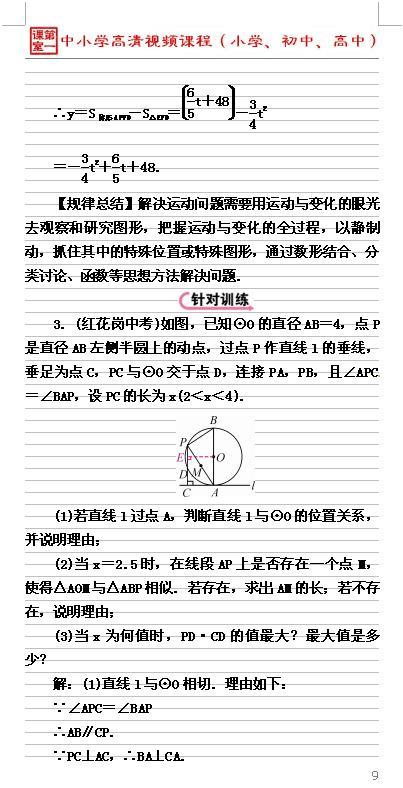 课第
室一
中小学高清视频课程（小学、初中、高中）
∴y＝S四边形APFD－S△EFD＝(6/5t＋48)－3/4t²
＝－3/4t²＋6/5t＋48.
【规律总结】解决运动问题需要用运动与变化的眼光
去观察和研究图形，把握运动与变化的全过程，以静制
动，抓住其中的特殊位置或特殊图形，通过数形结合、分
类讨论、函数等思想方法解决问题.
针对训练
3. (红花岗中考)如图，已知⊙O的直径AB＝4，点P
是直径AB左侧半圆上的动点，过点P作直线l的垂线，
垂足为点C，PC与⊙O交于点D，连接PA，PB，且∠APC
＝∠BAP，设PC的长为x(2＜x＜4).
B
P
E
O
D
M
C
A
l
(1)若直线l过点A，判断直线l与⊙O的位置关系，
并说明理由；
(2)当x＝2.5时，在线段AP上是否存在一个点M，
使得△AOM与△ABP相似．若存在，求出AM的长；若不存
在，说明理由；
(3)当x为何值时，PD·CD的值最大？最大值是多
少？
解：(1)直线l与⊙O相切．理由如下：
∵∠APC＝∠BAP
∴AB∥CP.
∵PC⊥AC，∴BA⊥CA.
9